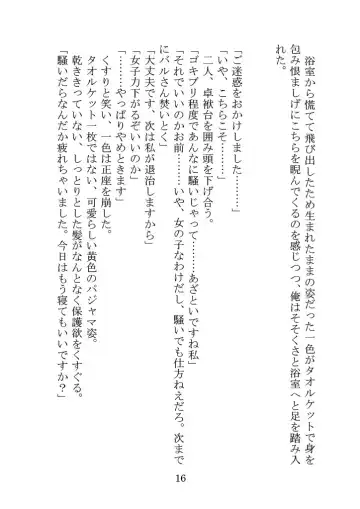 浴室から慌てて飛び出したため生まれたままの姿だった一色がタオルケットで身を
包み恨ましげにこちらを睨んでくるのを感じつつ、俺はそそくさと浴室へと足を踏み入
れた。
「ご迷惑をおかけしました………」
「いや、こちらこそ……」
二人、卓袱台を囲み頭を下げ合う。
「ゴキブリ程度であんなに騒いじゃって……あざといですね私」
「それでいいのかお前……いや、女の子なわけだし、騒いでも仕方ねえだろ。次まで
にバルさん焚いとく」
「大丈夫です、次は私が退治しますから」
「女子力下がるぞいいのか」
「………やっぱりやめときます」
くすりと笑い、一色は正座を崩した。
タオルケット一枚ではない、可愛らしい黄色のパジャマ姿。
乾ききっていない、しっとりとした髪がなんとなく保護欲をくすぐる。
「騒いだらなんだか疲れちゃいました。今日はもう寝てもいいですか？」
16